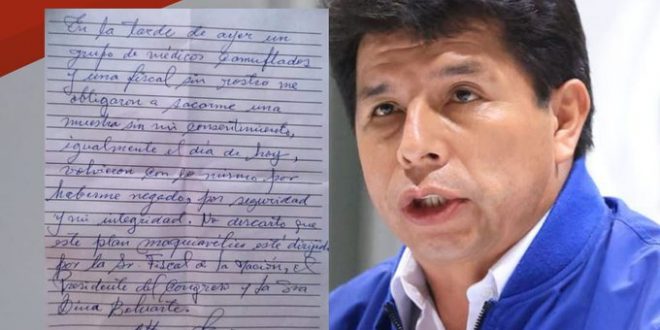 En la tarde de ayer un
grupo de médicos camuflados
y una fiscal sin rostro me
obligaron a sacarme una
muestra sin mi consentimiento,
igualmente el día de hoy,
volvieron con lo mismo por
haberme negado, por seguridad
y mi integridad. No descarto que
este plan maquiavélico esté dirigido
por la Sr Fiscal de la Nación, el
Presidente del Congreso y la Sra
Dina Boluarte.